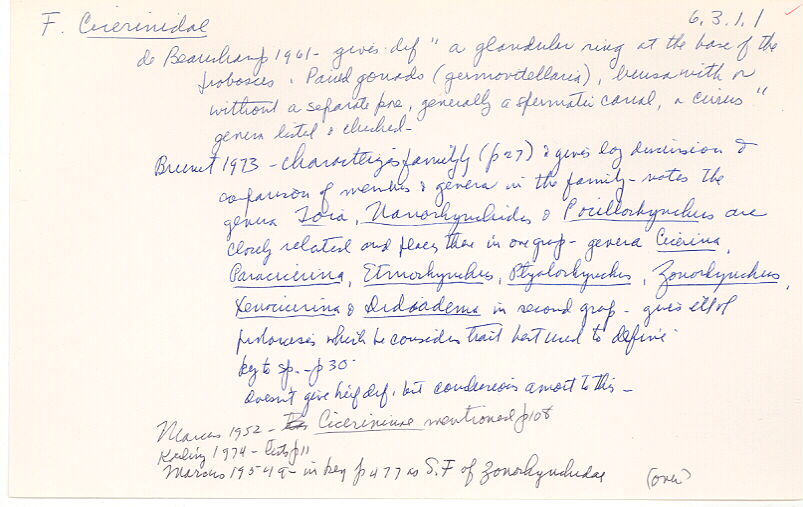 F. Cicerinidae 6.3.1.1
de Beauchamp 1961 - gives def " a glandular ring at the base of the
proboscis. Paired gonads (germovitellaria), bursa with or
without a separate pore, generally a spermatic canal, a cirrus "
genera listed & checked -
Brunet 1973 - characterizes family (p27) & gives long discussion &
comparison of members & genera in the family - notes the
genera Toia, Nannorhynchides & Pocillorhynchus are
closely related and places them in one group - genera Cicerina,
Paracicerina, Etmorhynchus, Ptyalorhynchus, Zonorhynchus,
Xenocicerina & Didiadema in second group - gives
proboscis which he considers trait best used to define
key to sp. - p 30 -
doesn't give brief def. but to this -
Marcus 1952 - Cicerininae mentioned p108
Karling 1974 - lists p11
Marcus 1954 - in key p 477 as S.F of Zonorhynchidae (over)